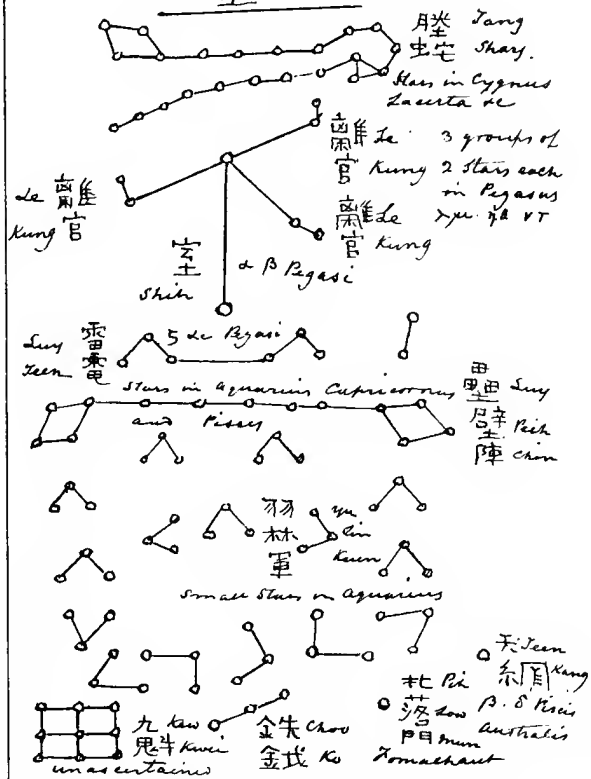 螣 Tang
蛇 Shay.
Stars in Cygnus
Lacerta &c
離 Le 3 groups of
宮 Kung 2 Stars each
in Pegasus
λμ. ηθ ντ
Le 離
Kung 宮
離 Le
宮 Kung
室
Shih
α β Pegasi
Luy 雷
Teen 電
5 &c Pegasi
Stars in Aquarius Capricornus
and Pisces
壘 Luy
壁 Peih
陣 Chin
羽 Yu
林 Lin
軍 Keun
Small Stars in Aquarius
天 Teen
綱 Kang
β. δ Piscis
Australis
北 Pih
落 Low
門 mun
Fomalhaut
九 Kew
魁 Kwei
unascertained
鈇 Choo
鉞 Ko